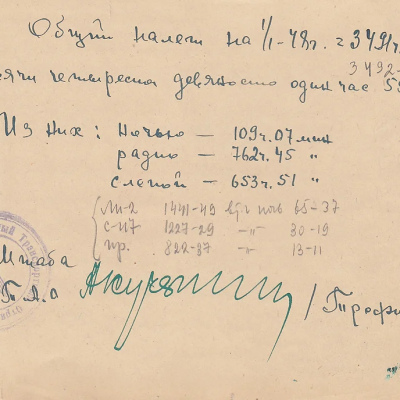 Общий налет на 1/1-48г. = 3491ч
3492-
сячи четыреста девяносто один час 5
Из них: ночью — 109ч. 07 мин
радио — 762ч. 45 "
слепой — 653ч. 51 "
Ли-2 1441-49 в т.ч. ночь 65-37
С-47 1227-29 -"- 30-19
пр. 822-37 -"- 13-11
Штаба
/ Трофи